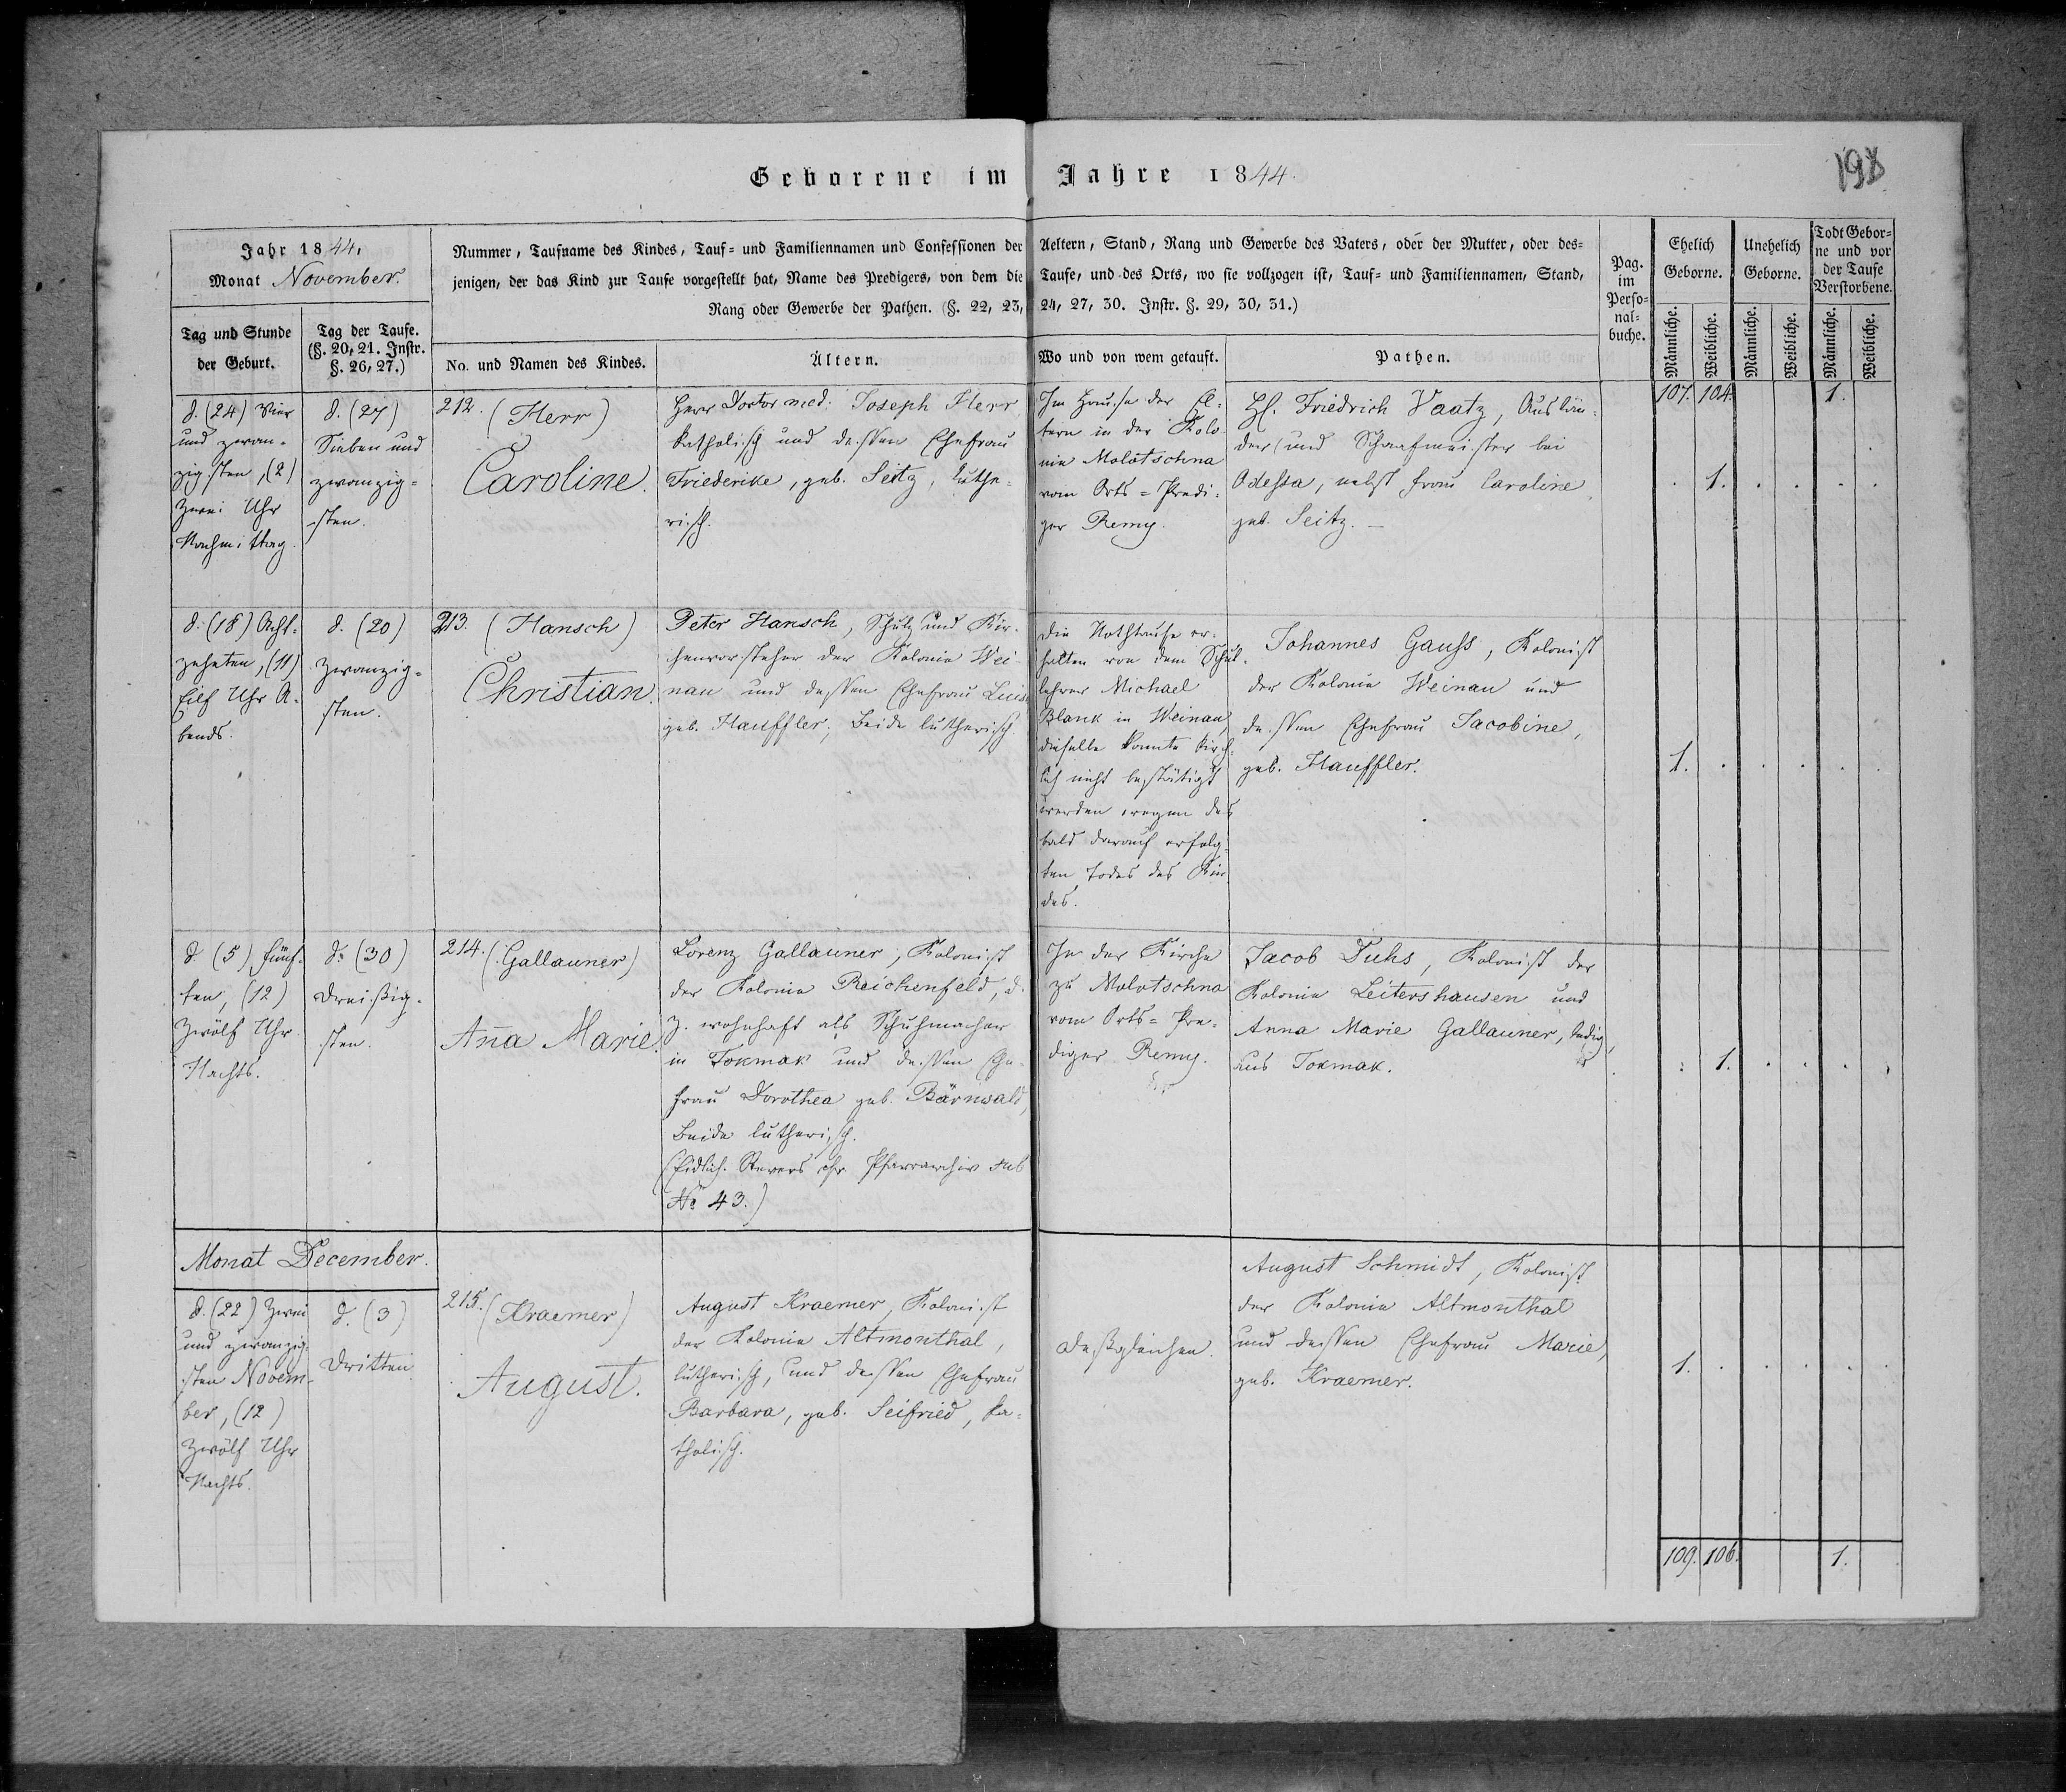 Geborene im Jahre 1844.
198
Jahr 1844,
Monat November.
Nummer, Taufname des Kindes, Tauf- und Familiennamen und Confessionen der Aeltern, Stand, Rang und Gewerbe des Vaters, oder der Mutter, oder des-
jenigen, der das Kind zur Taufe vorgestellt hat, Name des Predigers, von dem die Taufe, und des Orts, wo sie vollzogen ist, Tauf- und Familiennamen, Stand,
Rang oder Gewerbe der Pathen. (§. 22, 23, 24, 27, 30. Instr. §. 29, 30, 31.)
Pag.
im
Perso-
nal-
buche.
Ehelich
Geborne.
Unehelich
Geborne.
Todt Gebor-
ne und vor
der Taufe
Verstorbene.
Tag und Stunde
der Geburt.
Tag der Taufe.
(§. 20, 21. Instr.
§. 26, 27.)
No. und Namen des Kindes.
Ältern.
Wo und von wem getauft.
Pathen.
Männliche.
Weibliche.
Männliche.
Weibliche.
Männliche.
Weibliche.
107. 104. 1.
d. (24) Vier
und zwan-
zigsten, (2)
Zwei Uhr
Nachmittag.
d. (27)
Sieben und
zwanzig-
sten.
212. (Herr)
Caroline.
Herr Doctor med. Joseph Herr,
katholisch und dessen Ehefrau
Friederike, geb. Seitz, luthe-
risch.
Im Hause der El-
tern in der Kolo-
nie Molotschna
vom Orts-Predi-
ger Remy.
H. Friedrich Vaatz, Auslän-
der und Schaafmeister bei
Odessa, nebst Frau Caroline,
geb. Seitz. —
1.
d. (18) Acht-
zehnten, (11)
Eilf Uhr A-
bends.
d. (20)
zwanzig-
sten.
213. (Hansch)
Christian.
Peter Hansch, Schulz und Kir-
chenvorsteher der Kolonie Wei-
nau und dessen Ehefrau Luise
geb. Hauffler, Beide lutherisch.
Die Nothtaufe er-
halten von dem Schul-
lehrer Michael
Blank in Weinau,
dieselbe konnte kirch-
lich nicht bestätigt
werden wegen des
bald darauf erfolg-
ten Todes des Kin-
des.
Johannes Gauss, Kolonist
der Kolonie Weinau und
dessen Ehefrau Jacobine,
geb. Hauffler.
1.
d. (5) fünf-
ten, (12)
Zwölf Uhr
Nachts.
d. (30)
Dreißig-
sten.
214. (Gallauner)
Anna Marie.
Lorenz Gallauner, Kolonist
der Kolonie Reichenfeld, d.
Z. wohnhaft als Schuhmacher
in Tokmak und dessen Ehe-
frau Dorothea geb. Bärnwald,
Beide lutherisch.
(Eidlich. Revers Pfarrarchiv sub
No 43.)
In der Kirche
zu Molotschna
vom Orts-Pre-
diger Remy.
Jacob Fuhs, Kolonist der
Kolonie Leitershausen und
Anna Marie Gallauner, ledig,
aus Tokmak.
1.
Monat December.
d. (22) Zwei
und zwanzig-
sten Novem-
ber, (12)
Zwölf Uhr
Nachts.
d. (3)
Dritten.
215. (Kraemer)
August.
August Kraemer, Kolonist
der Kolonie Altmonthal,
lutherisch, und dessen Ehefrau
Barbara, geb. Seifried, ka-
tholisch.
Deßgleichen.
August Schmidt, Kolonist
der Kolonie Altmonthal
und dessen Ehefrau Marie,
geb. Kraemer.
1.
109. 106. 1.